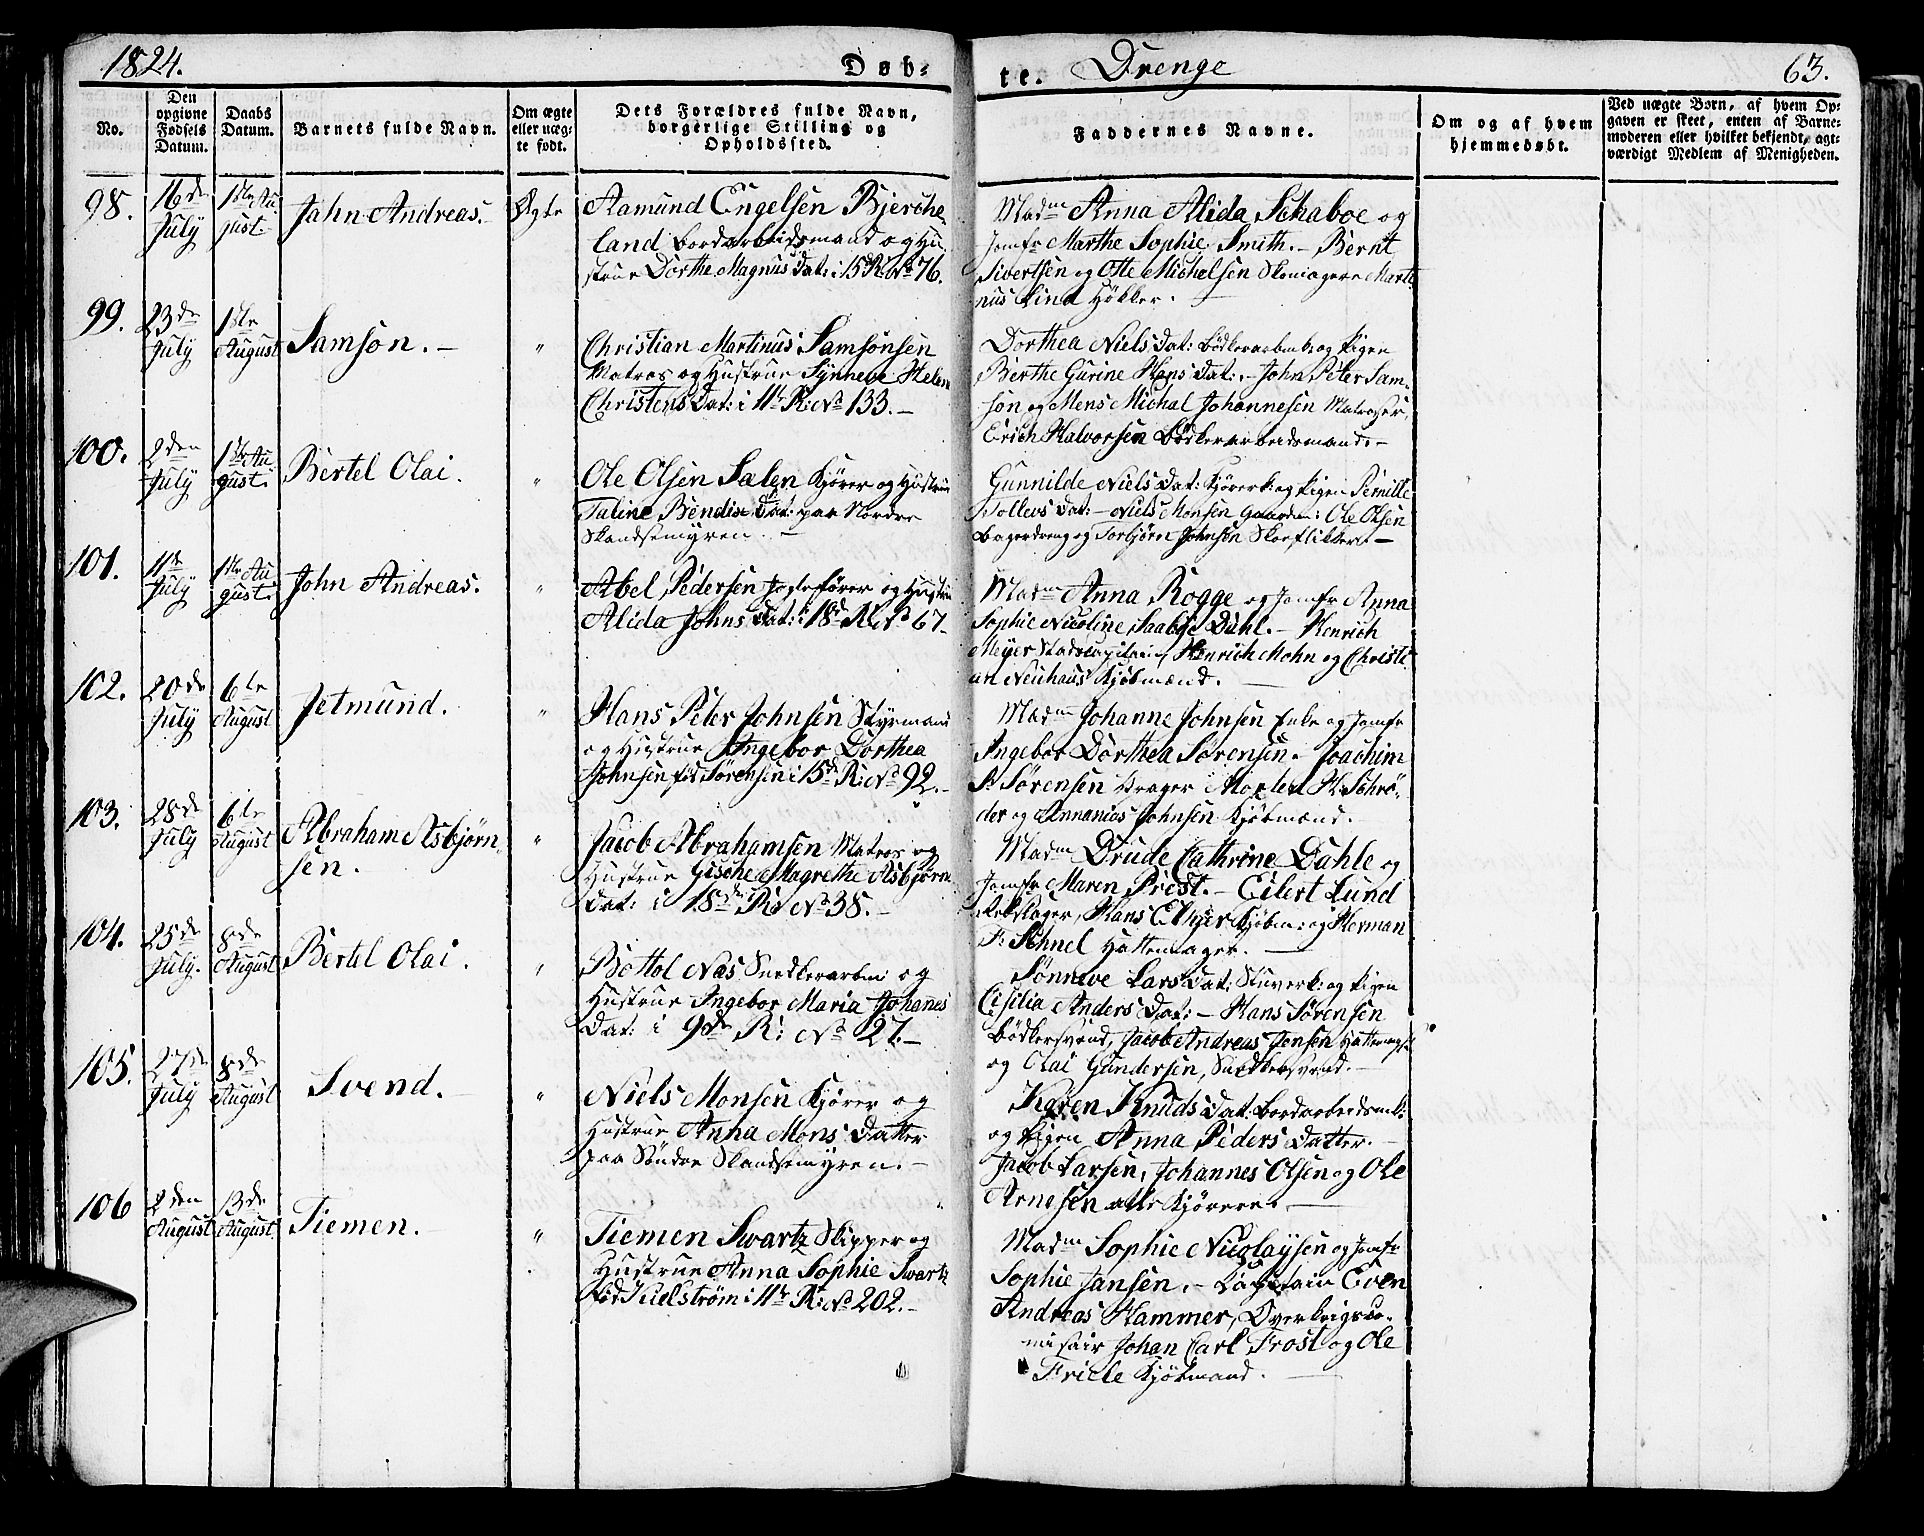 1824.
Døb-
te. Drenge
63.
No.
Den
opgivne
Fødsels
Datum.
Daabs
Datum.
Barnets fulde Navn.
Om ægte
eller uæg-
te født.
Dets Forældres fulde Navn,
borgerlige Stilling og
Opholdssted.
Faddernes Navne.
Om og af hvem
hjemmedøbt.
Ved uægte Børn, af hvem Op-
gaven er skeet, enten af Barne-
moderen eller hvilket bekjendt, agt-
værdigt Medlem af Menigheden.
98.
16de
July
1ste Au
gust.
Jahn Andreas.
Ægte
Aamund Engelsen Bjerche
land bordarbeidsmand og Hu
strue Dorthe Magnus Dat: i 15d R No 76.
Madm Anna Alida Schaboe og
Jomfr Marthe Sophie Smith. - Bernt
Sivertsen og Otte Michelsen Skomagere Marti
nus Lind Høkker.
99.
23de
July
1ste
August
Samson. -
"
Christian Martinus Samsonsen
Matros og Hustrue Synneve Helene
Christens Dat: i 11te R: No 133. -
Dorthea Niels Dat: bødkerarbmk: og Pigen
Berthe Gurine Hans Dat: - John Peter Sam-
son og Mens Michal Johannesen Matroser,
Erich Halvorsen bødkerarbeidsmand. -
100.
2den
July
1ste Au
gust.
Bertel Olai.
"
Ole Olsen Sælen Kjører og Hustrue
Taline Bendix Dat: paa Nordre
Skandsemyren. -
Gunnilde Niels Dat: Kjørerk: og Pigen Pernille
Tollevs Dat: - Niels Monsen Gaardm: Ole Olsen
bagerdreng og Torbjörn Johnsen Skoeflikker. -
101.
11te
July
1ste Au
gust.
John Andreas.
"
Abel Pedersen Jagtefører og Hustrue
Alida Johns Dat: i 18d R No 67-
Madm Anna Rogge og Jomfr Anna
Sophie Nicoline Saabye Dahl. - Henrich
Meyer Stadscapitain, Henrich Mohn og Christi
an Neuhaus Kjøbmænd.
102.
20de
July
6te
August
Jetmund.
"
Hans Peter Johnsen Styrmand
og Hustrue Ingebor Dorthea
Johnsen fød Sørensen i 15d R: No 92. -
Madm Johanne Johnsen Enke og Jomfr
Ingebor Dorthea Sørensen. - Joachim
P. Sørensen Krager Morten H: Schrö-
der og Annanias Johnsen Kjøbmænd.
103.
28de
July
6te
August
Abraham Asbjørn-
sen.
"
Jacob Abrahamsen Matros og
Hustrue Gische Magrethe Asbjørns
Dat: i 18de R: No 38. -
Madm Drude Cathrine Dahle og
Jomfr Maren Prest. - Eilert Lund
Rebslager, Hans Kjøbm: og Herman
F. Schnel Hattemager.
104.
25de
July.
8de
August
Bertel Olai.
"
Bottol Næs Snedkerarbm: og
Hustrue Ingebor Maria Johanes
Dat: i 9de R: No 27. -
Sønneve Lars Dat: Stuverk: og Pigen
Cisilia Anders Dat: - Hans Sørensen
bødkersvend, Jacob Andreas Jensen Hattemags:
og Olai Gundersen, Snedkersvend. -
105.
27de
July
8de
August
Svend.
"
Niels Monsen Kjører og
Hustrue Anna Mons Datter
paa Søndre Skandsemyren. -
Karen Knuds Dat: bordarbeidsmk:
og Pigen Anna Peders Datter.
Jacob Larsen, Johannes Olsen og Ole
Arnesen alle Kjørere.
106
2den
August
13de
August
Tiemen.
"
Tiemen Swartz Skipper og
Hustrue Anna Sophie Swartz
fød Kielström i 11te R: No 202. -
Madm Sophie Nicolaysen og Jomfr
Sophie Jansen. - Capitain Even
Andreas Hammer, Overkrigsco-
misair Johan Carl Frost og Ole
Friele Kjøbmand.